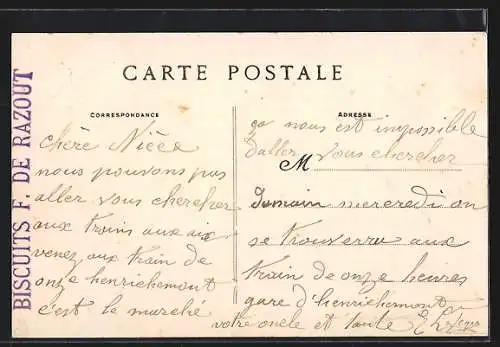 BISCUITS F. DE RAZOUT
CARTE POSTALE
CORRESPONDANCE
ADRESSE
chère Nièce
nous pouvons pas
aller vous chercher
aux trains aux aix
venez aux train de
onze henrichemont
c'est le marché
ça nous est impossible
d'aller vous chercher
M
demain mercredi on
se trouverra aux
train de onze heures
gare d'henrichemont
votre oncle et tante